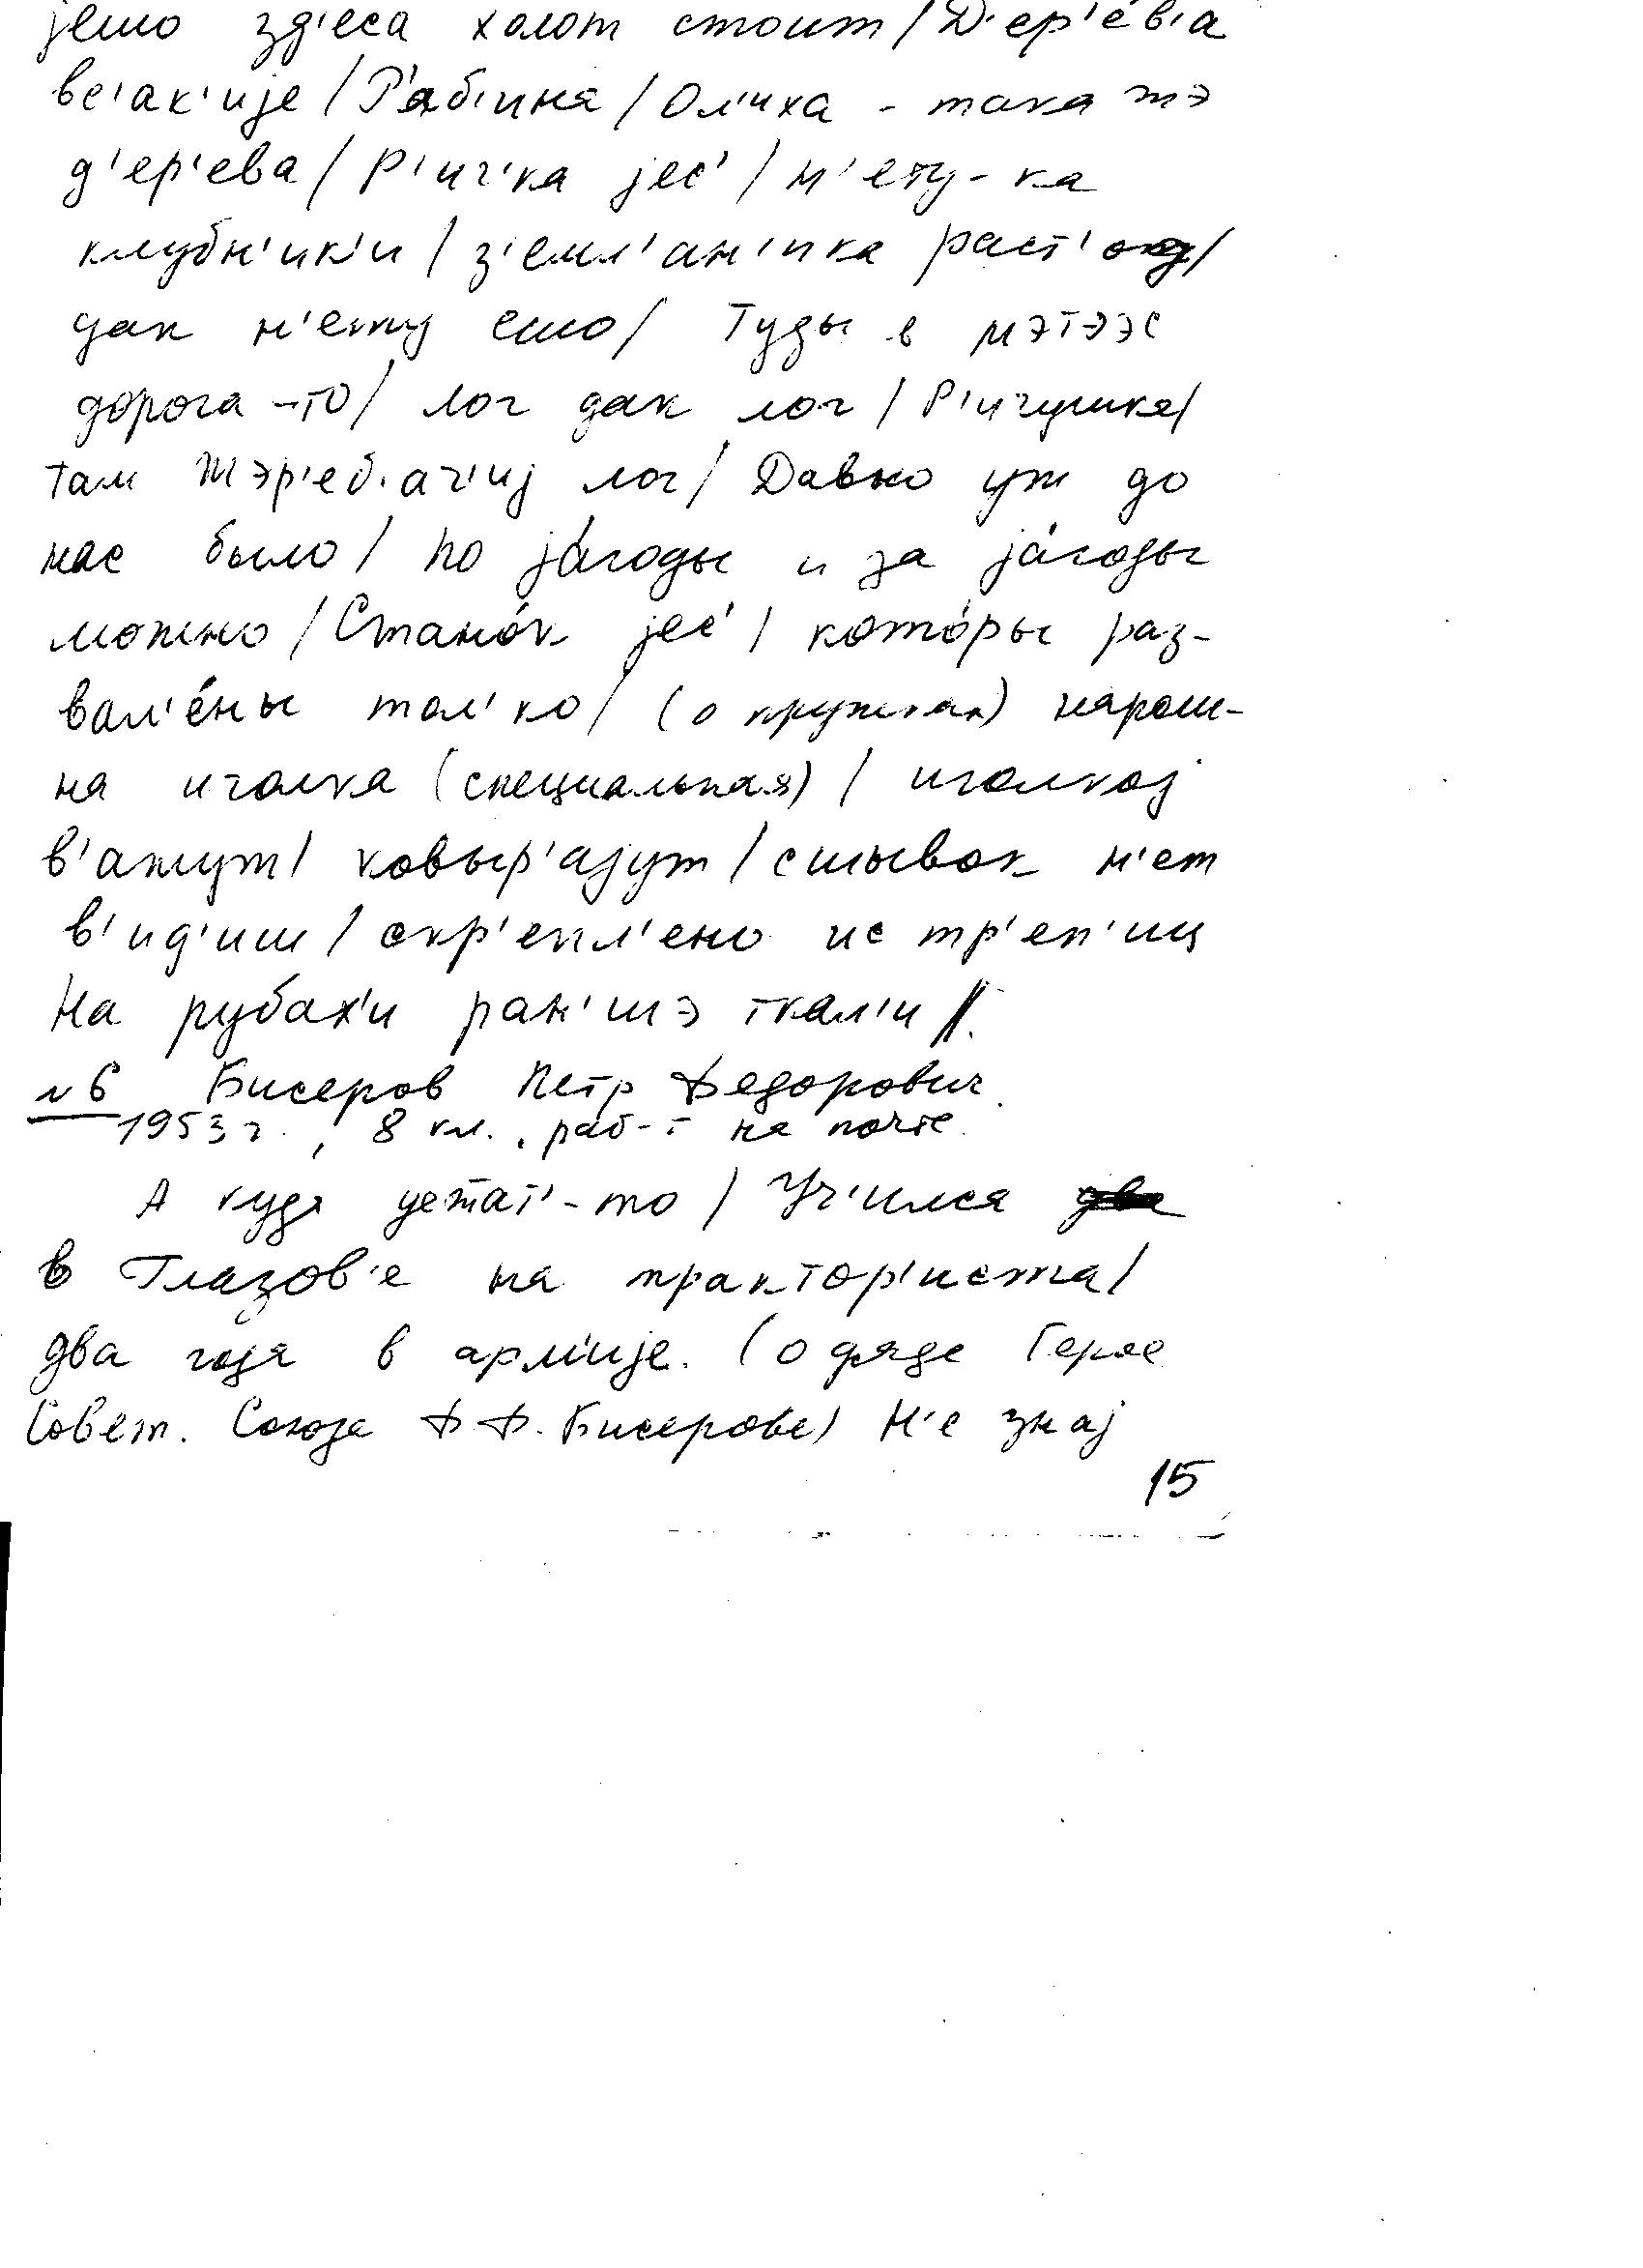 јешо зд'еса холот стоит / Д'ер'е́в'а
вс'ак'ије / Р'аб'ина / Ол'иха - така жэ
д'ер'ева / Р'ич'ка јес' / н'ету-ка
клубн'ик'и / з'емл'ан'ика раст'о
дак н'ету ешо / Туды в мэтээс
дорога -то / лог дак лог / Р'ичушка /
там Жэр'еб'ач'иј лог / Давно уж до
нас было / по ја́годы и за ја́годы
можно / Стано́к јес' / кото́ры раз-
вал'е́ны тол'ко / (о кружках) нарош-
на иголка (специальная) / иголкој
в'ажут / ковыр'ајут / сшывок н'ет
в'ид'иш / скр'епл'ено ис тр'еп'иц
На рубах'и ран'шэ ткал'и //.
№ 6 Бисеров Петр Федорович
1953 г., 8 кл., раб-т на почте.
А куда - то / Уч'илса
в Глазов'е на трактор'иста /
два года в арм'ије. (о дяде Герое
Совет. Союза Ф.Ф. Бисерове) Н'е знај
15